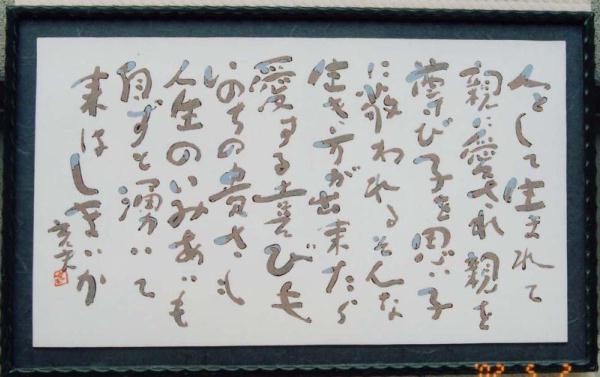 人として生まれて
親に愛され親を
尊び子を思い子
に敬われるそんな
生き方が出来たら
愛する喜びも
いのちの貴さも
人生のいみあいも
自ずと湧いて
来はしまいか